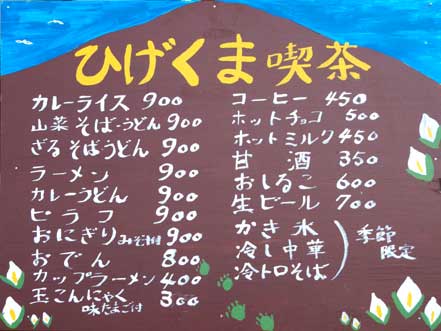 ひげくま喫茶
カレーライス 900
山菜そば・うどん 900
ざるそばうどん 900
ラーメン 900
カレーうどん 900
ピラフ 900
おにぎりみそ汁付 900
おでん 800
カップラーメン 400
玉こんにゃく 味たまご付 300
コーヒー 450
ホットチョコ 500
ホットミルク 450
甘酒 350
おしるこ 600
生ビール 700
かき氷
冷し中華
冷トロそば
季節限定